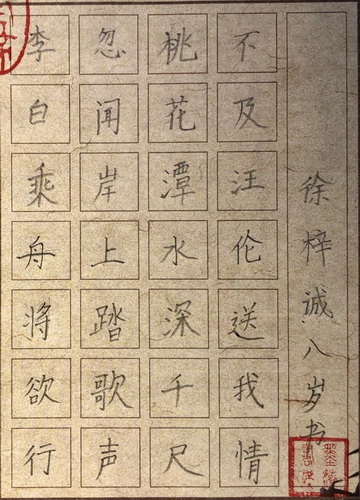 李白乘舟将欲行
忽闻岸上踏歌声
桃花潭水深千尺
不及汪伦送我情
徐梓诚八岁书